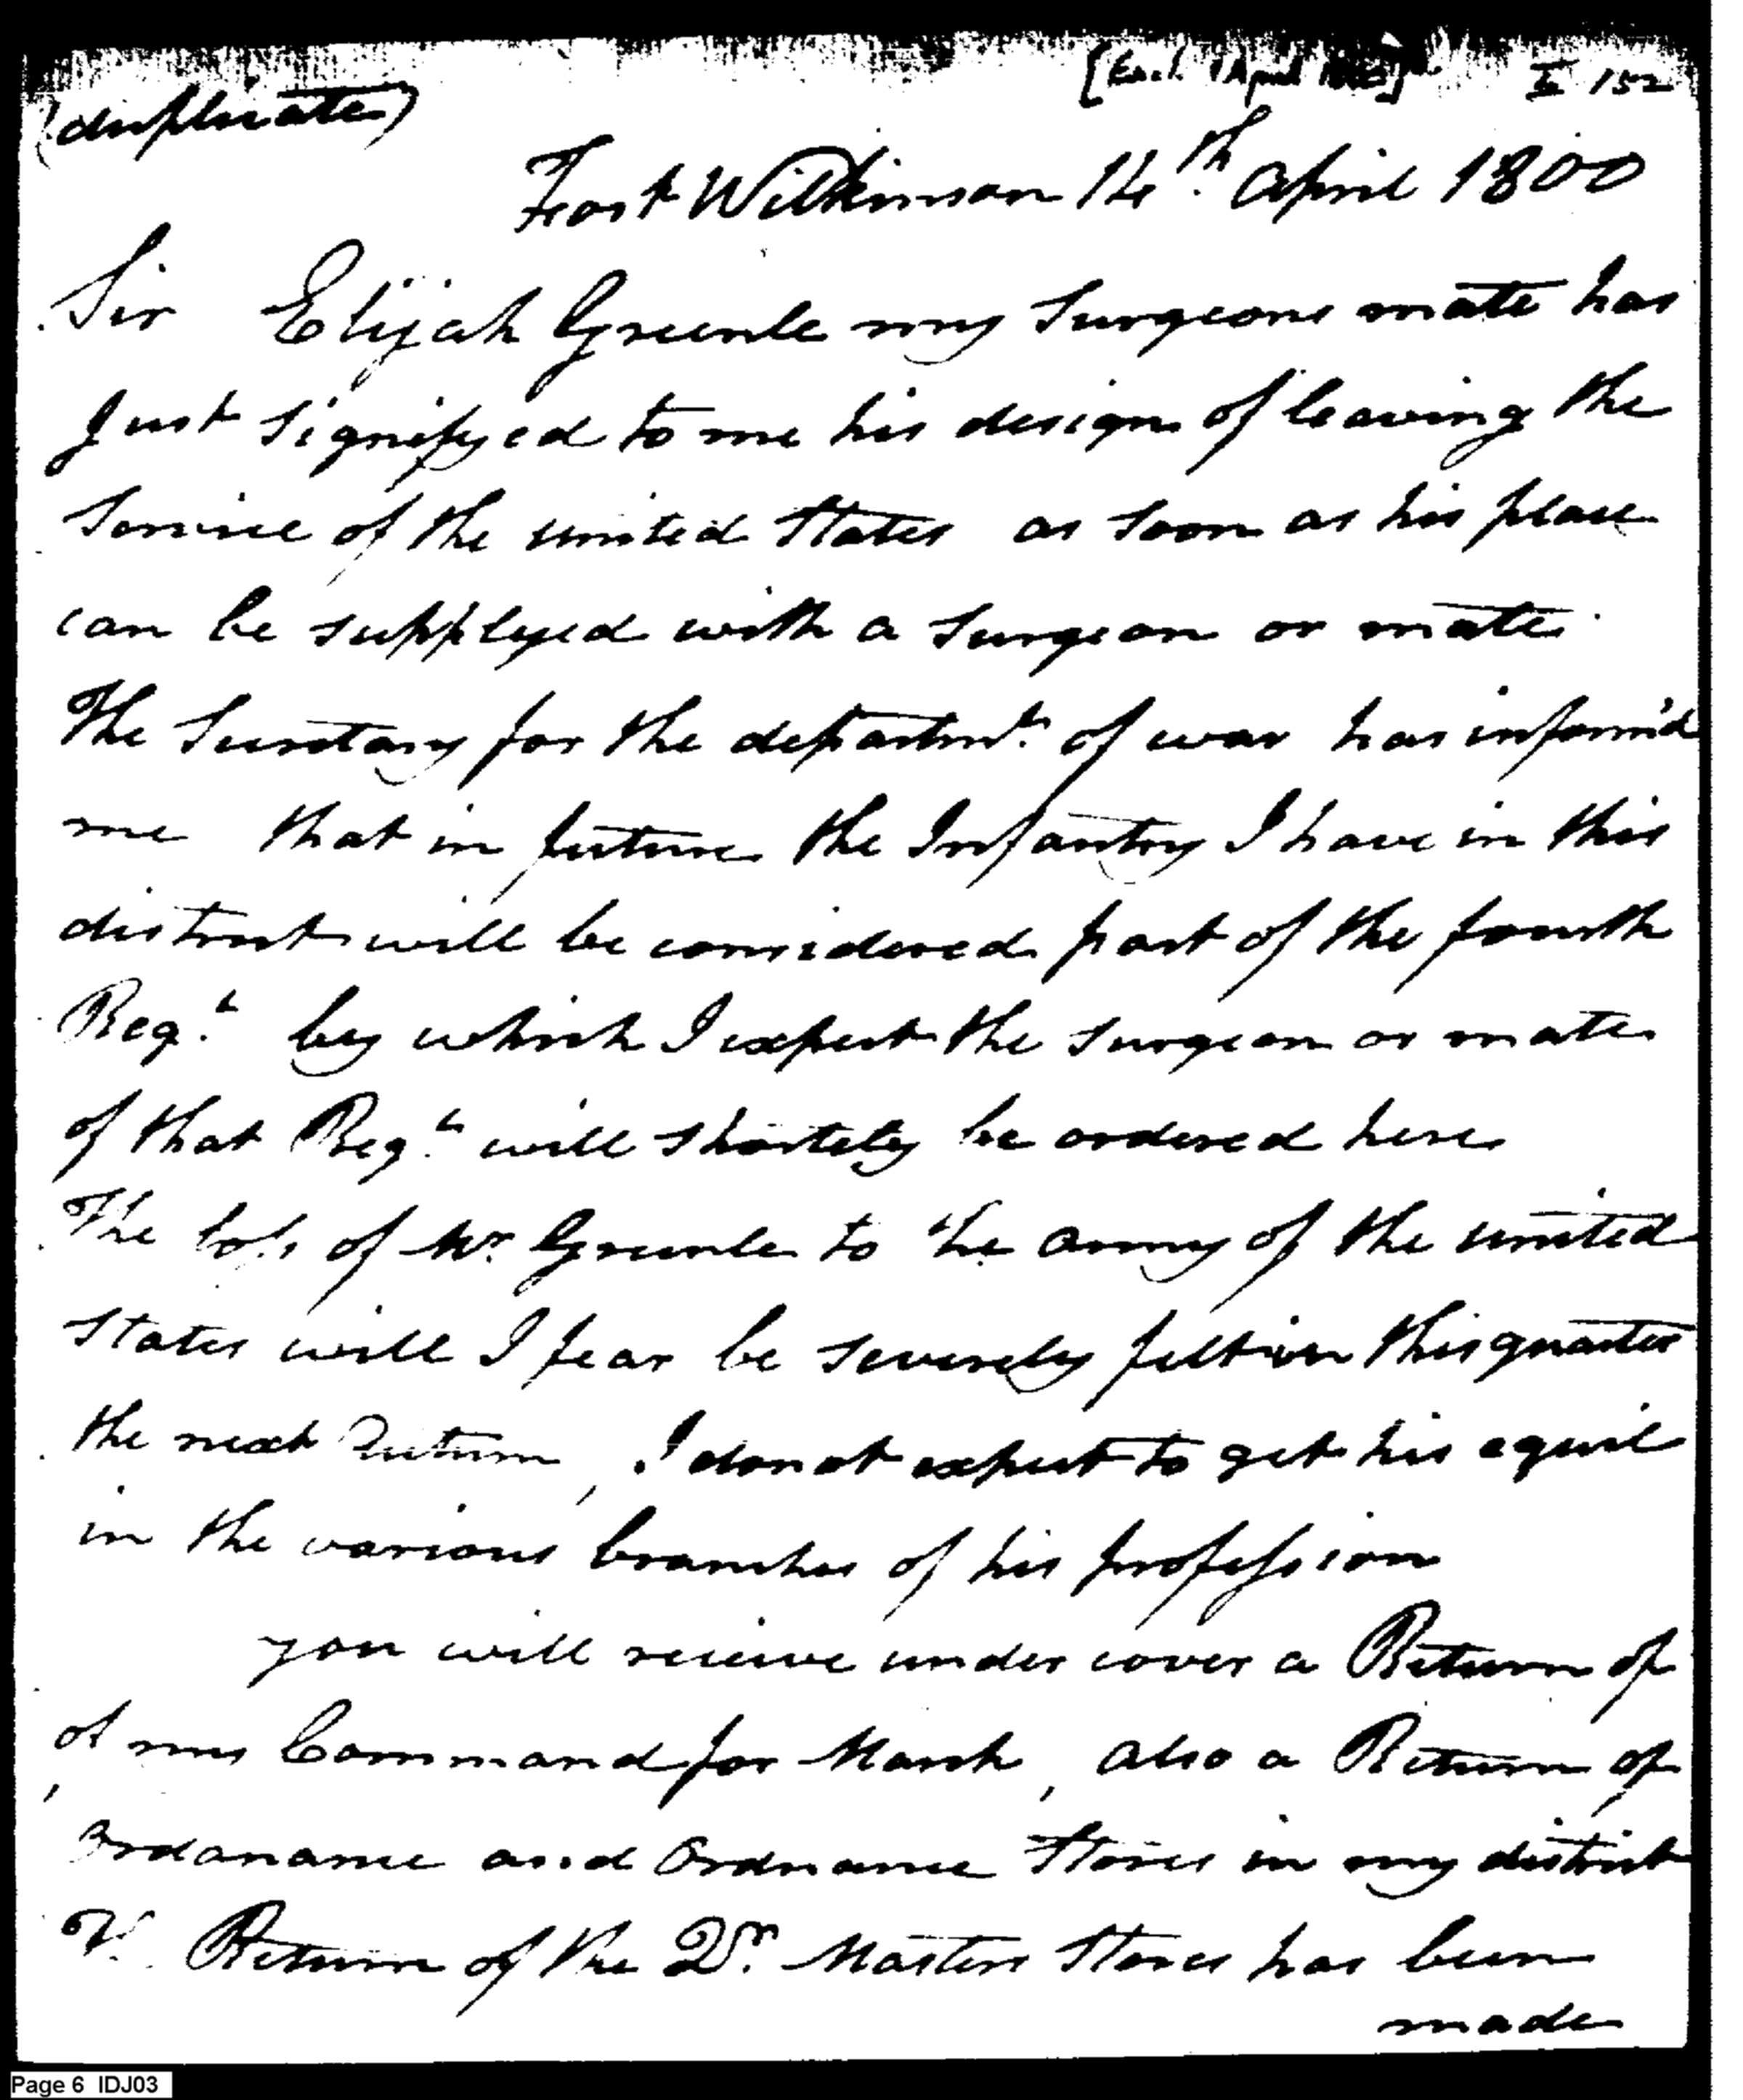 (duplicate)
[Encl. 1 April 1800] II 152
Fort Wilkinson 14th. April 1800
Sir Elijah Greenle my Surgeons mate has
Just signifyed to me his design of leaving the
Service of the united States as soon as his place
can be supplyed with a Surgeon or mate
The Secretary for the departmt. of war has inform'd
me that in future the Infantry I have in this
district will be considered part of the fourth
Regt. by which I expect the surgeon or mate
of that Regt. will shortely be ordered here
The loss of Mr. Greenle to the army of the united
States will I fear be severely felt in this quarter
the next Autum, I do not expect to get his equil
in the various branches of his profession
you will receive under cover a Return of
of my Command for March, also a Return of
Ordanance and Ordnance Stores in my district
Return of the Qr. Masters Stores has been
made
Page 6 IDJ03